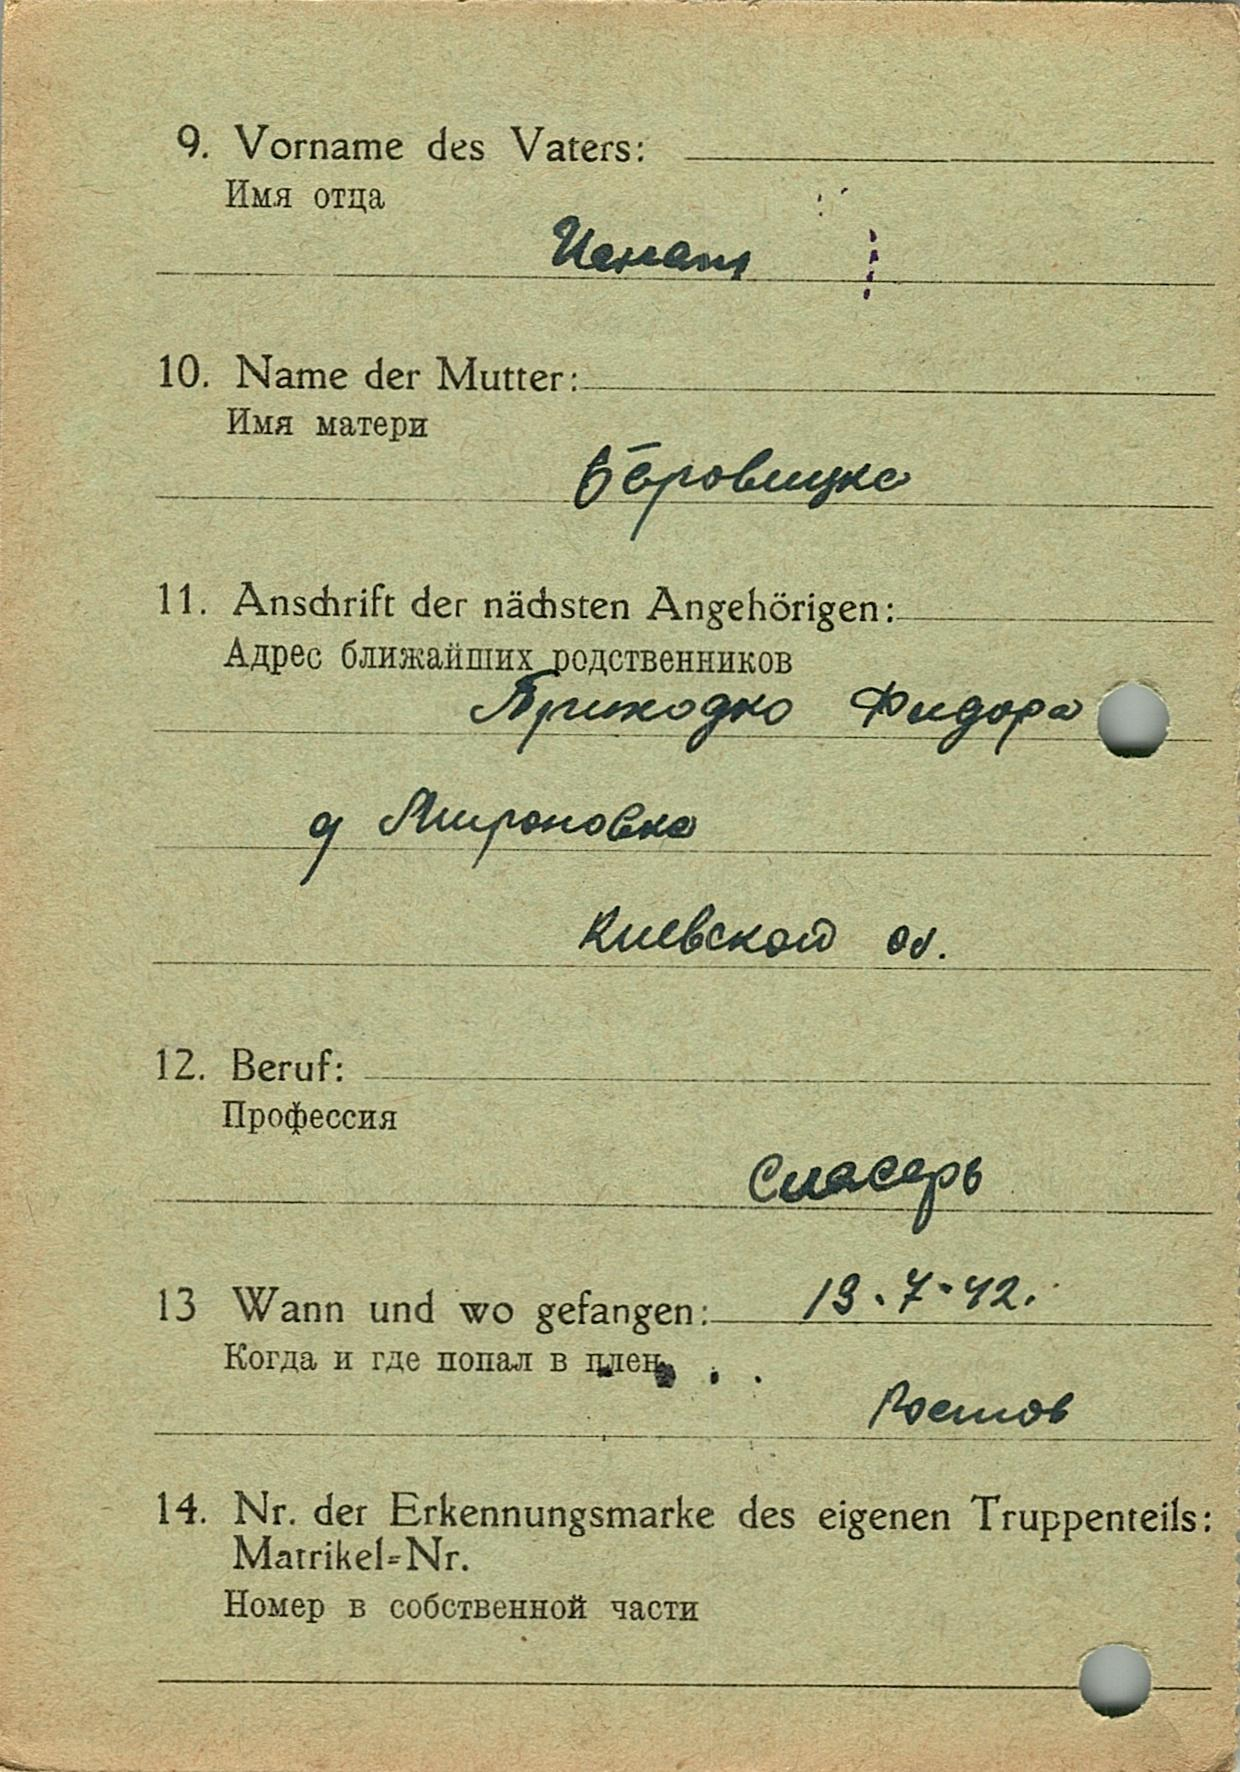 9. Vorname des Vaters:
Имя отца
Игнат
10. Name der Mutter:
Имя матери
11. Anschrift der nächsten Angehörigen:
Адрес ближайших родственников
Приходко Фидора
д Мироновка
Киевской об.
12. Beruf:
Профессия
Слесарь
13 Wann und wo gefangen: 19.7.42.
Когда и где попал в плен
Ростов
14. Nr. der Erkennungsmarke des eigenen Truppenteils:
Matrikel=Nr.
Номер в собственной части